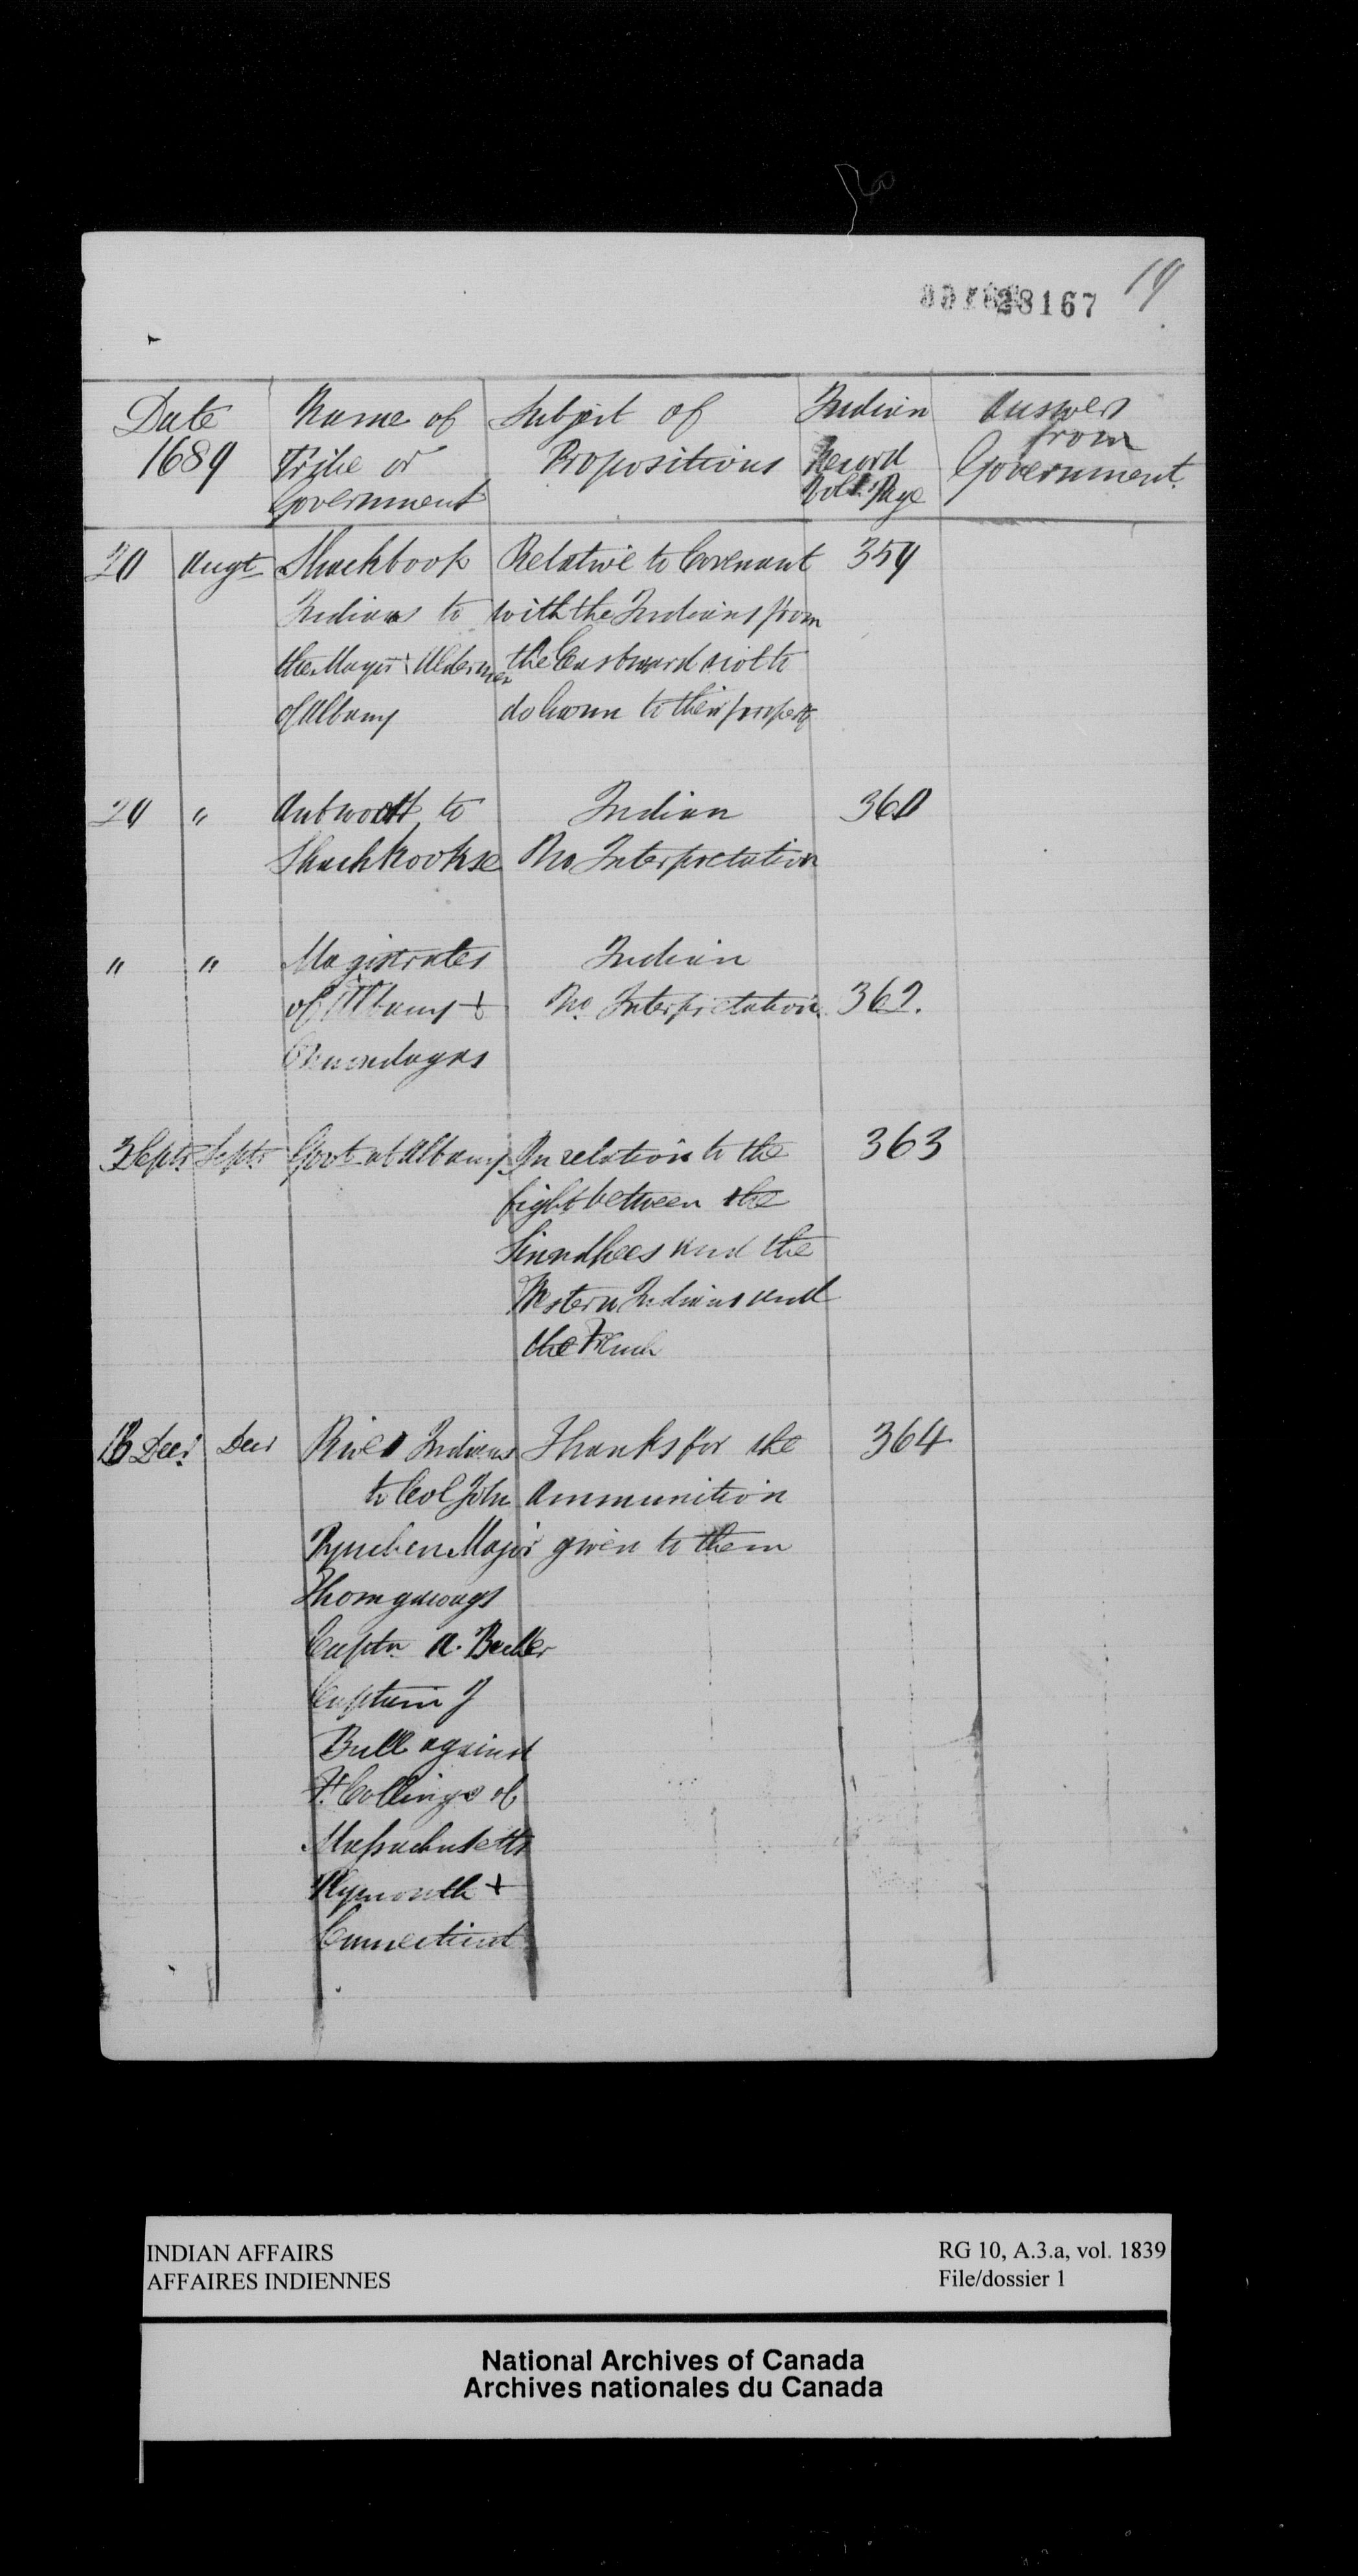 28167 19
Date Name of Subject of Indian Answer
from
1689 Tribe or Propositions Record Government
Government Vol 1 Page
20 Augt Shackbook Relative to Covenant 359
Indians to with the Indians from
the Mayor & Aldermen the Eastward not to
of Albany do harm to their property
20 " to Indian 360
Shackkookse No Interpretation
" " Magistrates Indian
of Albany + No. Interpretation 362.
Onnondagas
3 Septr Septr Govt at Albany In relation to the 363
fight between the
and the
Western Indians and
the French
Decr Decr River Indians Thanks for the 364
to Col John Ammunition
Pynchen Major given to them
Captn A.
Captain J
Bull against
F. Collings of
Massachusetts
Plymouth +
Connecticut
INDIAN AFFAIRS RG 10, A.3.a, vol. 1839
AFFAIRES INDIENNES File/dossier 1
National Archives of Canada
Archives nationales du Canada